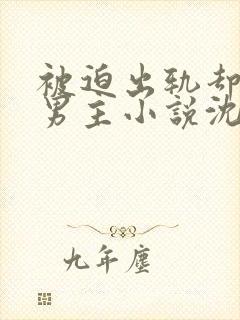 被迫出轨却
男主小說沈
九年塵